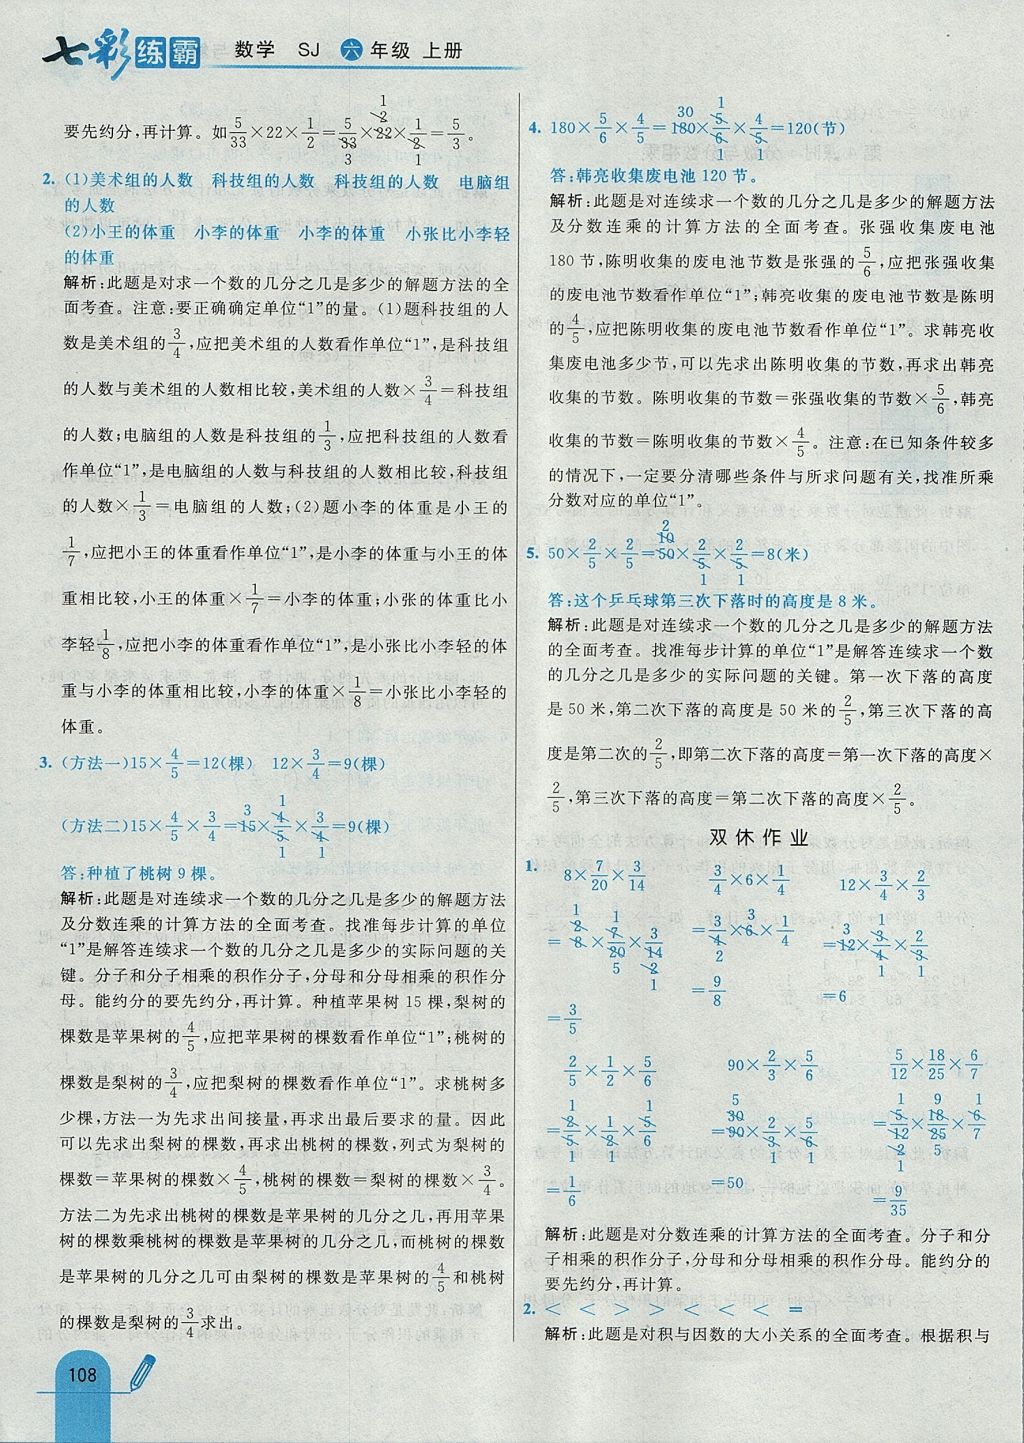 七彩练霸 数学 SJ 六年级 上册
要先约分,再计算。如5/33×22×1/2=5/33×22×1/2=5/3。
2. (1)美术组的人数 科技组的人数 科技组的人数 电脑组
的人数
(2)小王的体重 小李的体重 小李的体重 小张比小李轻
的体重
解析:此题是对求一个数的几分之几是多少的解题方法的全
面考查。注意:要正确确定单位“1”的量。(1)题科技组的人
数是美术组的3/4,应把美术组的人数看作单位“1”,是科技组
的人数与美术组的人数相比较,美术组的人数×3/4=科技组
的人数;电脑组的人数是科技组的1/3,应把科技组的人数看
作单位“1”,是电脑组的人数与科技组的人数相比较,科技组
的人数×1/3=电脑组的人数;(2)题小李的体重是小王的
1/7,应把小王的体重看作单位“1”,是小李的体重与小王的体
重相比较,小王的体重×1/7=小李的体重;小张的体重比小
李轻1/8,应把小李的体重看作单位“1”,是小张比小李轻的体
重与小李的体重相比较,小李的体重×1/8=小张比小李轻的
体重。
3. (方法一)15×4/5=12(棵) 12×3/4=9(棵)
(方法二)15×4/5×3/4=15×4/5×3/4=9(棵)
答:种植了桃树 9 棵。
解析:此题是对连续求一个数的几分之几是多少的解题方法
及分数连乘的计算方法的全面考查。找准每步计算的单位
“1”是解答连续求一个数的几分之几是多少的实际问题的关
键。分子和分子相乘的积作分子,分母和分母相乘的积作分
母。能约分的要先约分,再计算。种植苹果树 15 棵,梨树的
棵数是苹果树的4/5,应把苹果树的棵数看作单位“1”;桃树的
棵数是梨树的3/4,应把梨树的棵数看作单位“1”。求桃树多
少棵,方法一为先求出间接量,再求出最后要求的量。因此
可以先求出梨树的棵数,再求出桃树的棵数,列式为梨树的
棵数=苹果树的棵数×4/5,桃树的棵数=梨树的棵数×3/4。
方法二为先求桃树的棵数是苹果树的几分之几,再用苹果树
的棵数乘桃树的棵数是苹果树的几分之几,而桃树的棵数
是苹果树的几分之几可由梨树的棵数是苹果树的4/5和桃树
的棵数是梨树的3/4求出。
108
4. 180×5/6×4/5=180×5/6×4/5=120(节)
答:韩亮收集废电池 120 节。
解析:此题是对连续求一个数的几分之几是多少的解题方法
及分数连乘的计算方法的全面考查。张强收集废电池
180 节,陈明收集的废电池节数是张强的5/6,应把张强收集
的废电池节数看作单位“1”;韩亮收集的废电池节数是陈明
的4/5,应把陈明收集的废电池节数看作单位“1”。求韩亮收
集废电池多少节,可以先求出陈明收集的节数,再求出韩亮
收集的节数。陈明收集的节数=张强收集的节数×5/6,韩亮
收集的节数=陈明收集的节数×4/5。注意:在已知条件较多
的情况下,一定要分清哪些条件与所求问题有关,找准所乘
分数对应的单位“1”。
5. 50×2/5×2/5=50×2/5×2/5=8(米)
答:这个乒乓球第三次下落时的高度是 8 米。
解析:此题是对连续求一个数的几分之几是多少的解题方法
的全面考查。找准每步计算的单位“1”是解答连续求一个数
的几分之几是多少的实际问题的关键。第一次下落的高度
是 50 米,第二次下落的高度是 50 米的2/5,第三次下落的高
度是第二次的2/5,即第二次下落的高度=第一次下落的高度×
2/5,第三次下落的高度=第二次下落的高度×2/5。
双休作业
1. 8×7/20×3/14 3/4×6×1/4 12×3/4×2/3
=8×7/20×3/14 =3/4×6×1/4 =12×3/4×2/3
=3/5 =9/8 =6
2/5×1/2×5/6 90×2/3×5/6 5/12×18/25×6/7
=2/5×1/2×5/6 =90×2/3×5/6 =5/12×18/25×6/7
=1/6 =50 =9/35
解析:此题是对分数连乘的计算方法的全面考查。分子和分
子相乘的积作分子,分母和分母相乘的积作分母。能约分的
要先约分,再计算。
2. < < > > < < < =
解析:此题是对积与因数的大小关系的全面考查。根据积与